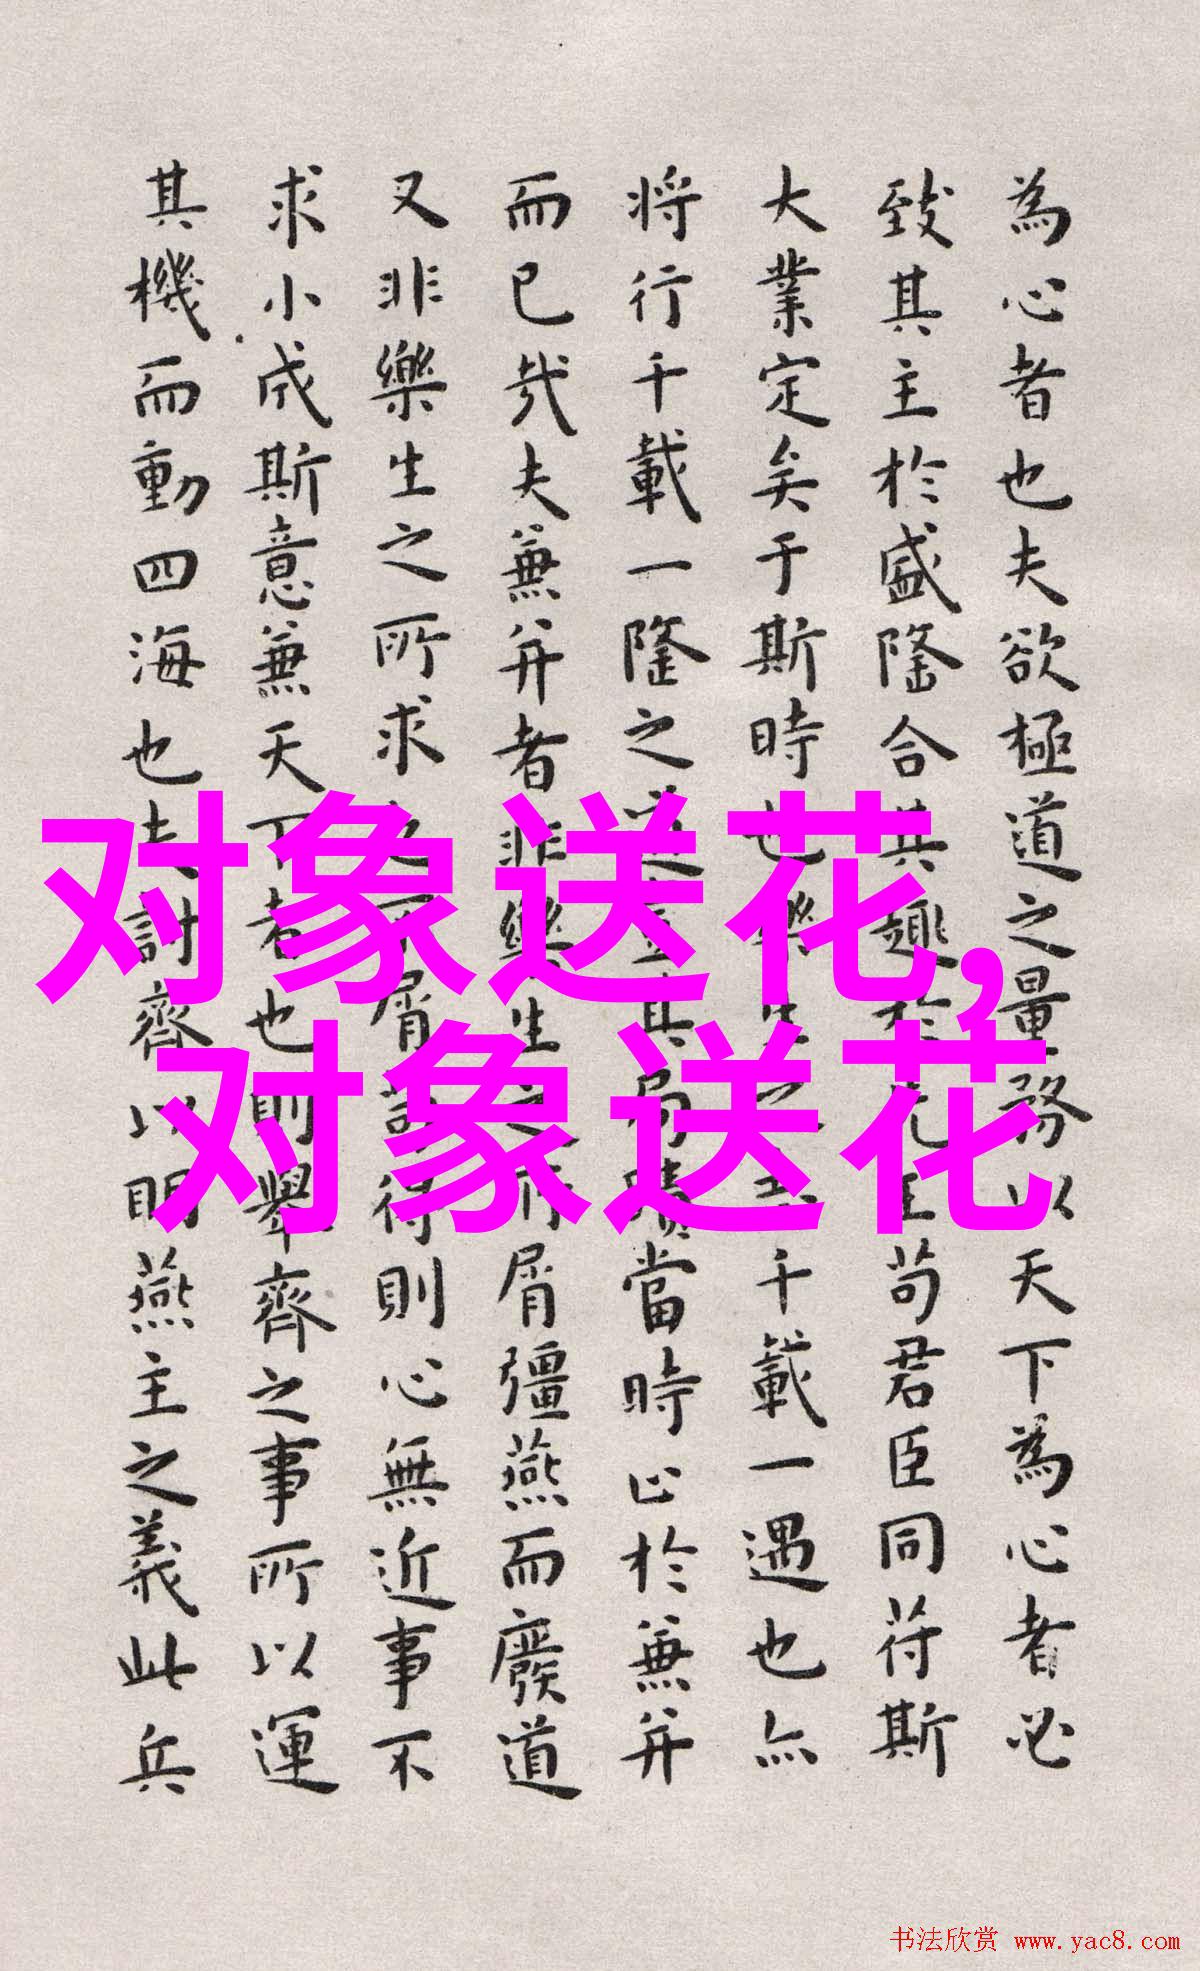 為心者也夫欲極道之量務以天下為心者必
致其主於盛隆合其趣於先王苟君臣同符斯
大業定矣于斯時也樂生之志千載一遇也亦
將行千載一隆之道豈其局蹟當時止於兼并
而已哉夫兼并者非樂生之所屑彊燕而廢道
又非樂生之所求不屑苟得則心無近事不
求小成斯意兼天下者也則舉齊之事所以運
其機而動四海也夫討齊以明燕主之義此兵
对象送花,
对象送花
书法欣赏 www.yac8.com